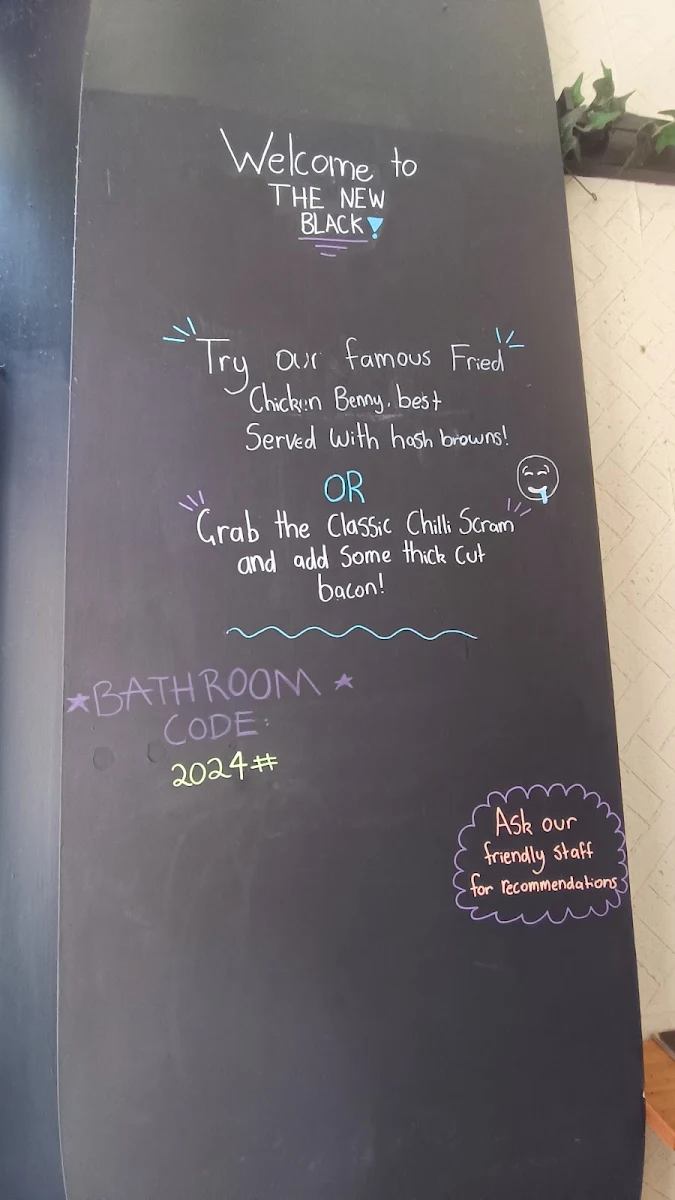 Welcome to
THE NEW
BLACK!
Try our famous Fried
Chicken Benny. best
Served with hash browns!
OR
Grab the Classic Chilli Scram
and add Some thick cut
bacon!
BATHROOM
CODE:
2024#
Ask our
friendly staff
for recommendations